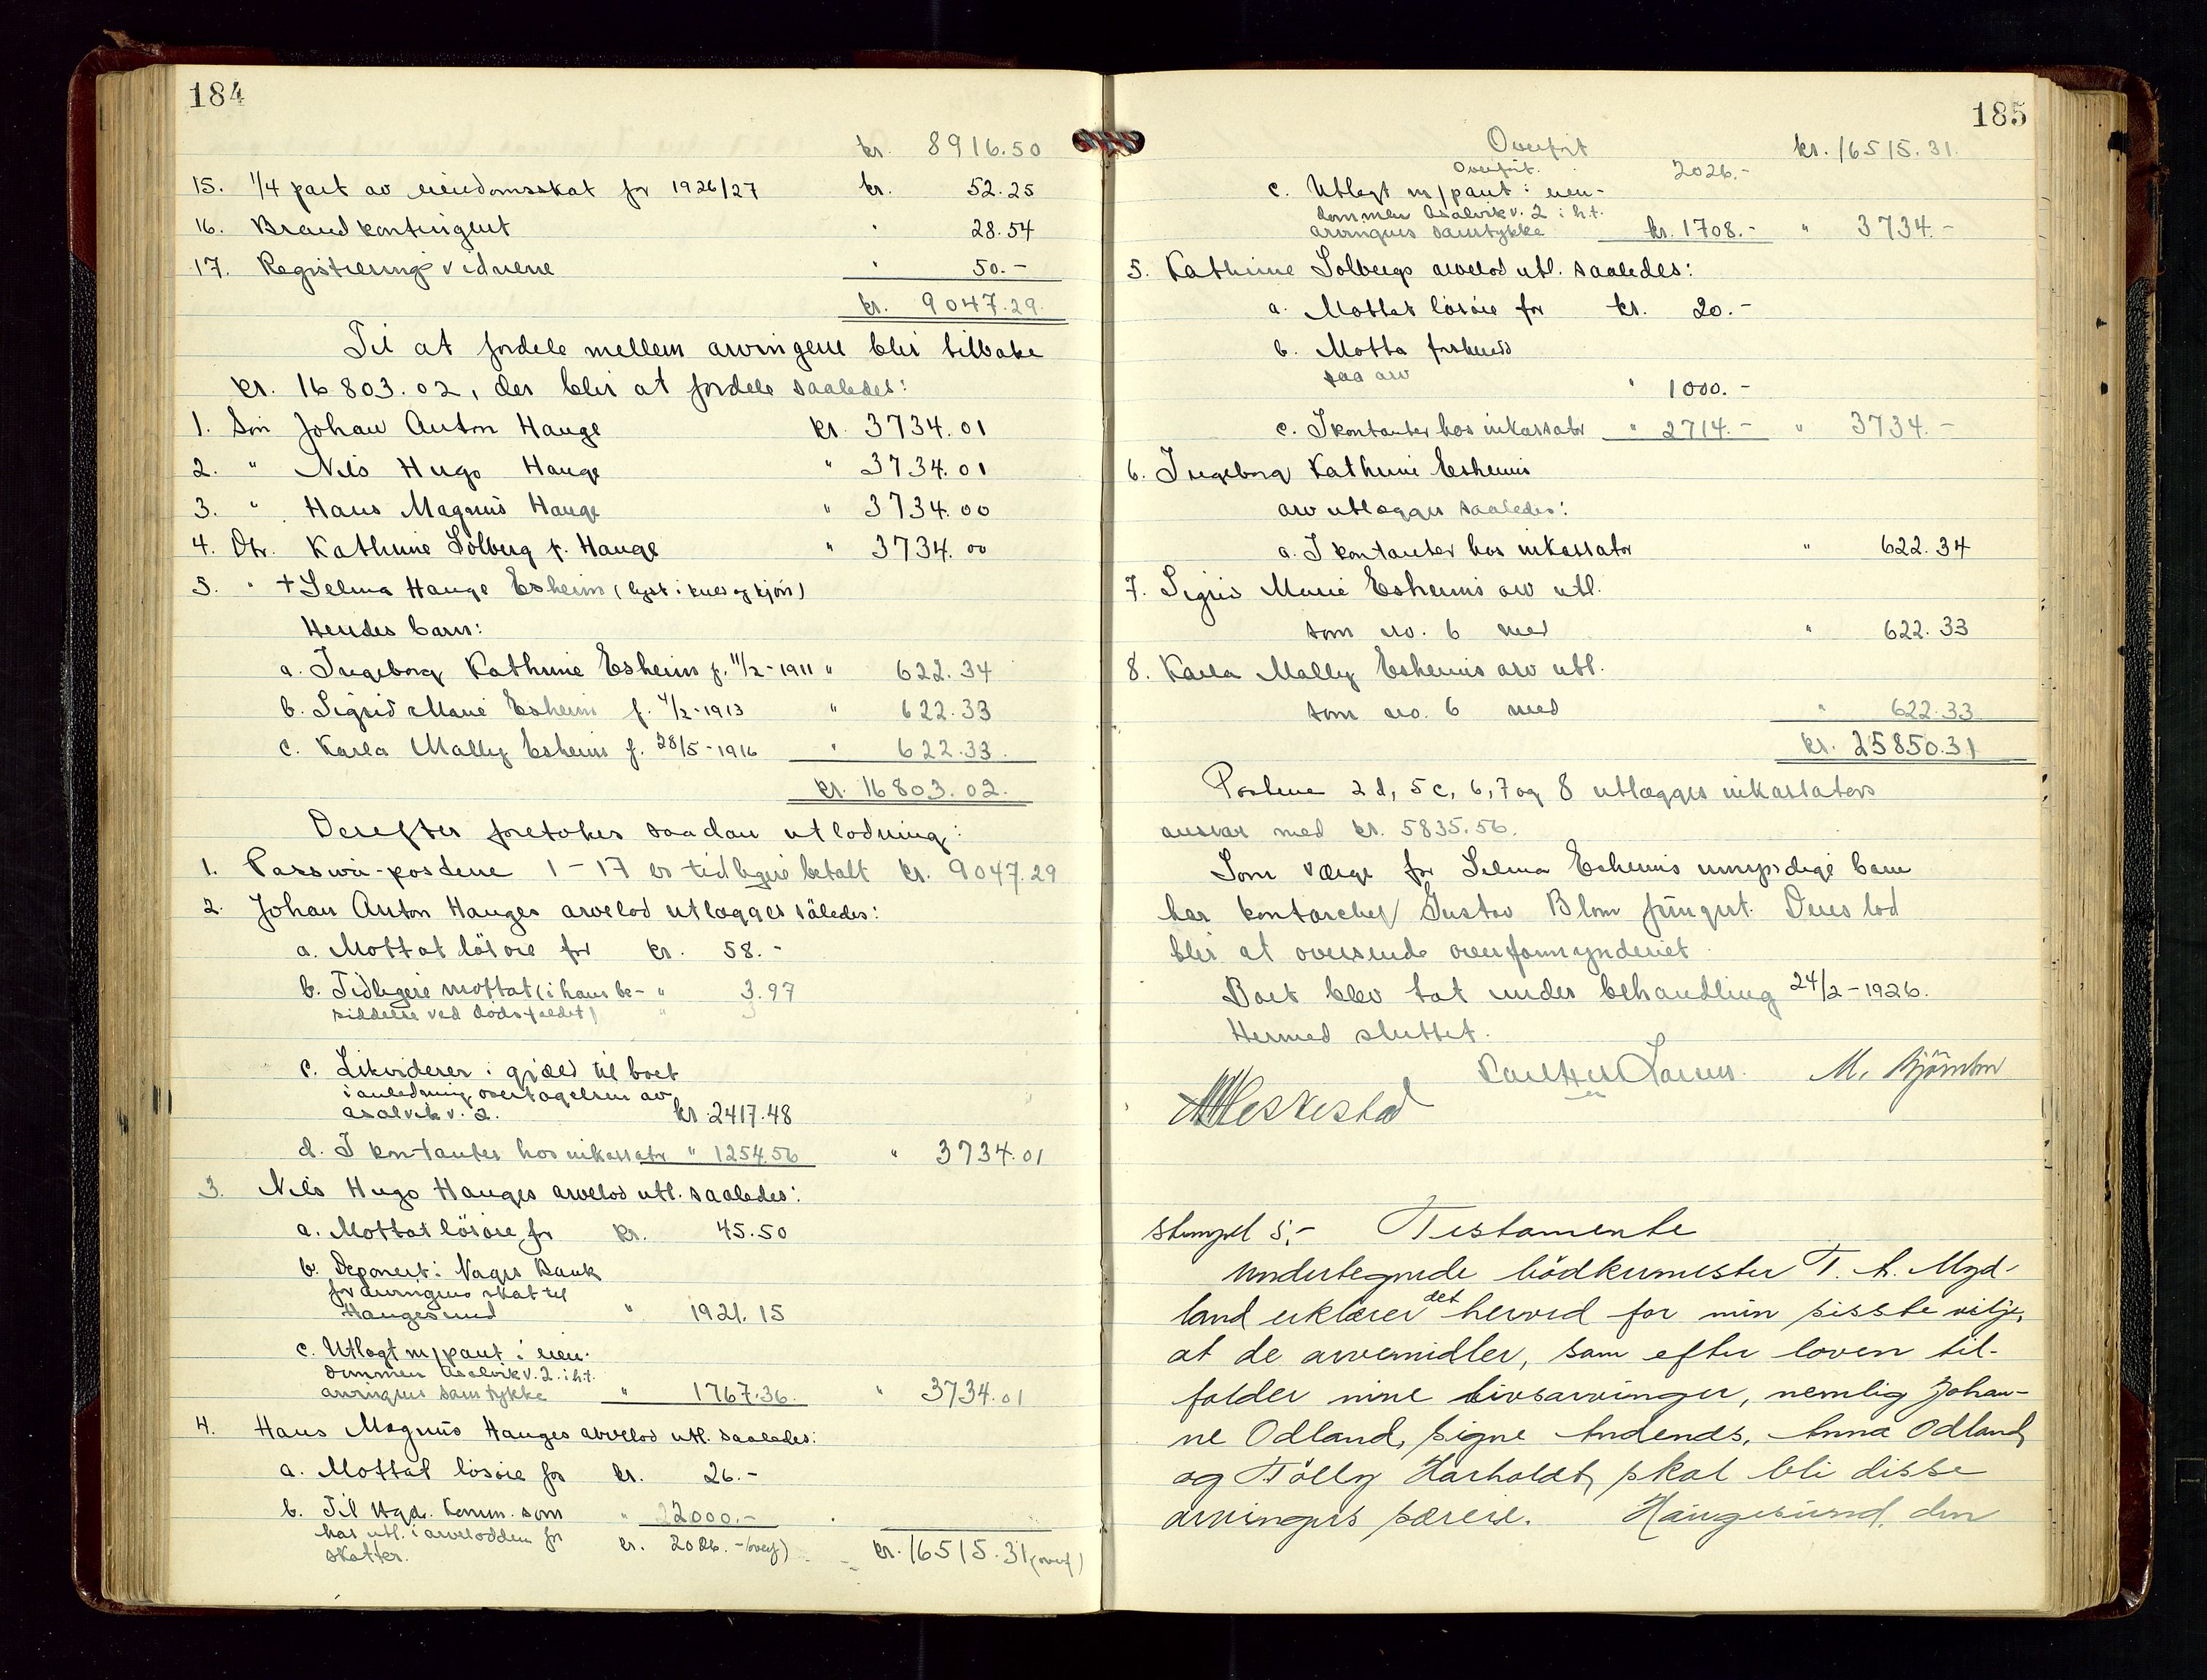 184
kr. 8916.50
15. 1/4 part av eiendomsskat for 1926/27 kr. 52.25
16. Brandkontingent " 28.54
17. Registreringsvidnene " 50.-
kr. 9047.29.
Til at fordele mellem arvingene blir tilbake
kr. 16803.02, der blir at fordele saaledes:
1. Søn Johan Anton Hauge kr. 3734.01
2. " Nils Hugo Hauge " 3734.01
3. " Hans Magnus Hauge " 3734.00
4. Dtr. Kathrine Solberg f. Hauge " 3734.00
5. " + Selma Hauge Esheim (lyst i kuld og kjøn)
Hendes barn:
a. Ingeborg Kathrine Esheim f. 11/2-1911 " 622.34
b. Sigrid Marie Esheim f. 4/2-1913 " 622.33
c. Karla Mally Esheim f. 28/5-1916 " 622.33.
kr. 16803.02.
Derefter foretokes saadan utlodning:
1. Passiva-postene 1-17 er tidligere betalt kr. 9047.29
2. Johan Anton Hauges arvelod utlægges således:
a. Mottat løsøre for kr. 58.-
b. Tidligere mottat (i hans be- " 3.97
siddelse ved dødsfaldet) "
c. Likviderer i gjæld til boet
i anledning overtagelsen av
Asalvik v. 2. kr. 2417.48
d. I kontanter hos inkassator " 1254.56 " 3734.01
3. Nils Hugo Hauges arvelod utl. saaledes:
a. Mottat løsøre for kr. 45.50
b. Deponert i Norges Bank
for arvingens skat til
Haugesund " 1921.15
c. Utlagt m/pant i eien-
dommen Asalvik v. 2. i h.t.
arvingenes samtykke " 1767.36. " 3734.01
4. Hans Magnus Hauges arvelod utl. saaledes:
a. Mottat løsøre for kr. 26.-
b. Til Hgd. komm. som " 2000.-
har utl. i arvelodden for
skatter. kr. 2026.-(overf) kr. 16515.31 (overf)
185
Overført kr. 16515.31.
Overført. 2026.-
c. Utlagt m/pant i eien-
dommen Asalvik v. 2 i h.t.
arvingenes samtykke kr. 1708.- " 3734.-
5. Kathrine Solbergs arvelod utl. saaledes:
a. Mottat løsøre for kr. 20.-
b. Motta forskuds
saa arv " 1000.-
c. I kontanter hos inkassator " 2714.- " 3734.-
6. Ingeborg Kathrine Esheims
arv utlægges saaledes:
a. I kontanter hos inkassator " 622.34
7. Sigrid Marie Esheims arv utl.
som no. 6 med " 622.33
8. Karla Mally Esheims arv utl.
som no. 6 med " 622.33
kr. 25850.31
Postene 2d, 5c, 6, 7 og 8 utlægges inkassators
ansvar med kr. 5835.56.
Som værge for Selma Esheims umyndige barn
har kontorchef Gustav Blom fungert. Deres lod
blir at oversende overformynderiet.
Boet blev tat under behandling 24/2-1926.
Hermed sluttet.
M. Bjørnbo
Stempel 5,- Testamente
Undertegnede bødkermester T. A. Myd-
land erklærer det herved for min sisste vilje,
at de arvemidler, som efter loven til-
falder mine livsarvinger, nemlig Johan-
ne Odland, Signe Andends, Anna Odland,
og Tølly Harholdt, skal bli disse
arvingers særeie. Haugesund, den